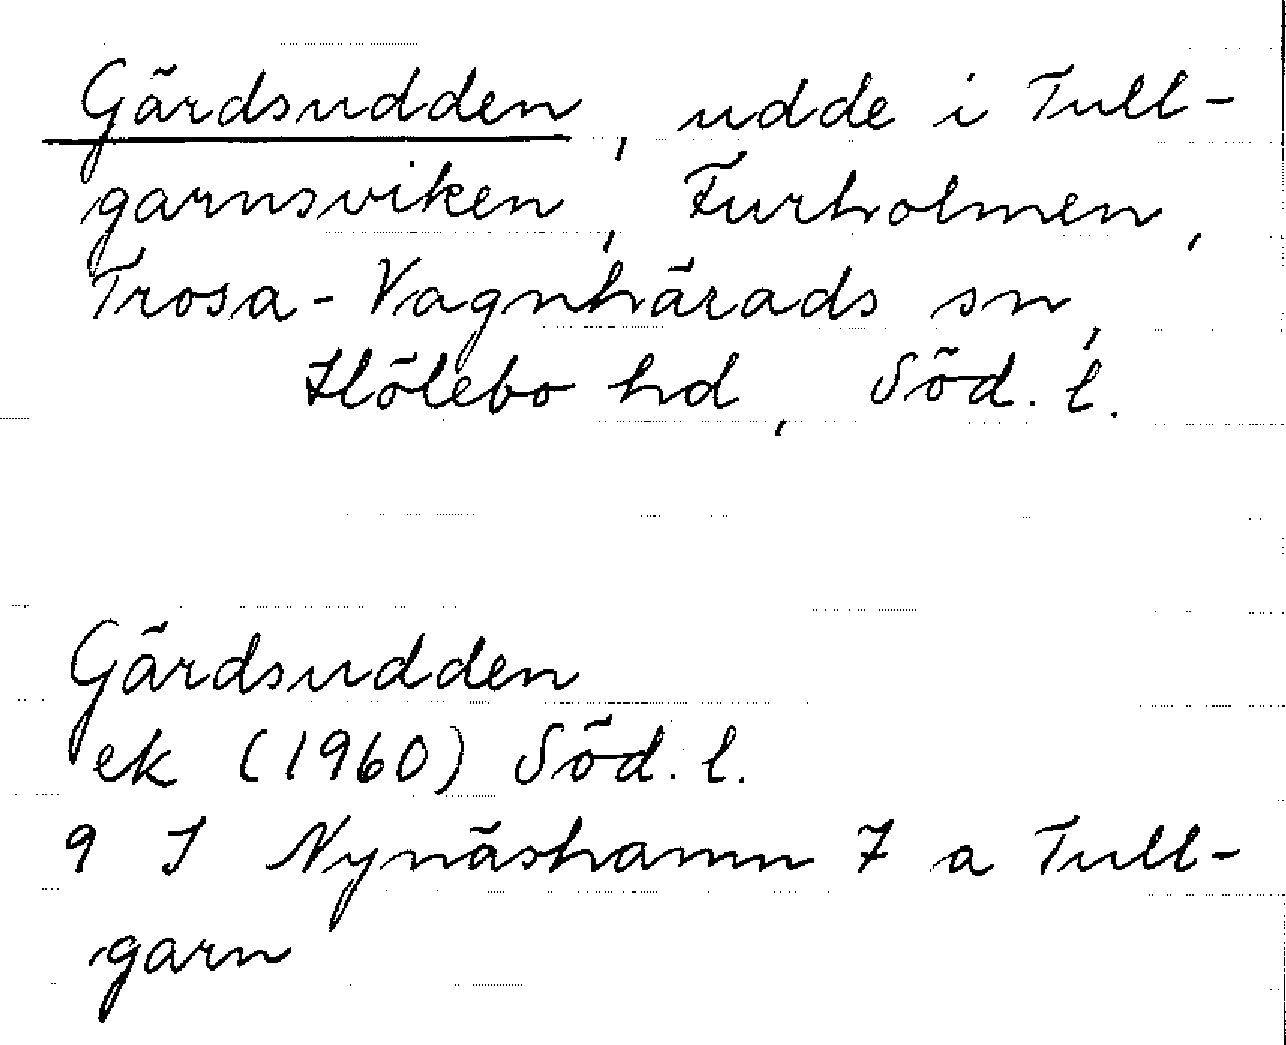 Gärdsudden, udde i Tull-
garnsviken, Furholmen,
Trosa-Vagnhärads sn,
Hölebo hd, Söd. l.
Gärdsudden
ek (1960) Söd. l.
9 I Nynäshamn 7 a Tull-
garn